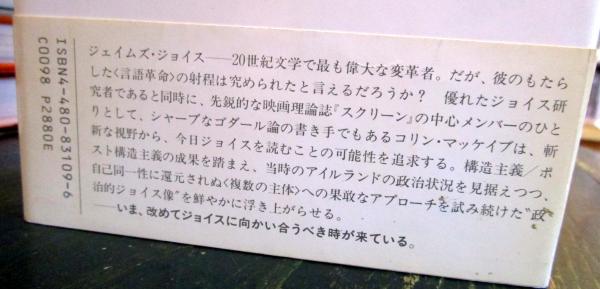 ISBN4-480-83109-6
C0098 P2880E
ジェイムズ・ジョイス——20世紀文学で最も偉大な変革者。だが、彼のもたら
した〈言語革命〉の射程は究められたと言えるだろうか? 優れたジョイス研
究者であると同時に、先鋭的な映画理論誌『スクリーン』の中心メンバーのひと
りとして、シャープなゴダール論の書き手でもあるコリン・マッケイブは、斬
新な視野から、今日ジョイスを読むことの可能性を追求する。構造主義/ポ
スト構造主義の成果を踏まえ、当時のアイルランドの政治状況を見据えつつ、
自己同一性に還元されぬ〈複数の主体〉への果敢なアプローチを試み続けた"政
治的ジョイス像"を鮮やかに浮き上がらせる。
——いま、改めてジョイスに向かい合うべき時が来ている。